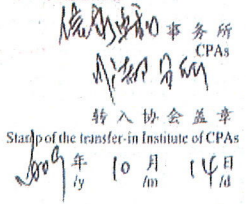 事务所
CPAs
成都分所
转入协会盖章
Stamp of the transfer-in Institute of CPAs
2009年 10月 14日
/y /m /d